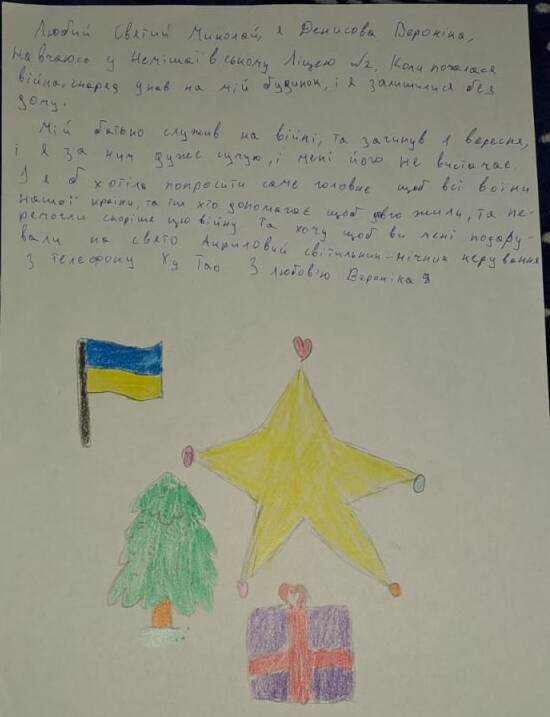 Любий Святий Миколай, я Денисова Вероніка,
Навчаюсь у Немішаївському Ліцею №2. Коли почалася
війна, снаряд упав на мій будинок, і я залишилися без
дому.
Мій батько служив на війні, та загинув 1 вересня,
і я за ним дуже сумую, і мені його не вистачає.
І я б хотіла попросити саме головне щоб всі воїни
нашої країни, та тих хто допомагає щоб довго жили, та пе-
ремогли скоріше цю війну та хочу щоб ви мені подару-
вали на свято Акриловий світильник-нічник керування
з телефону Ху Тао З любов'ю Вероніка